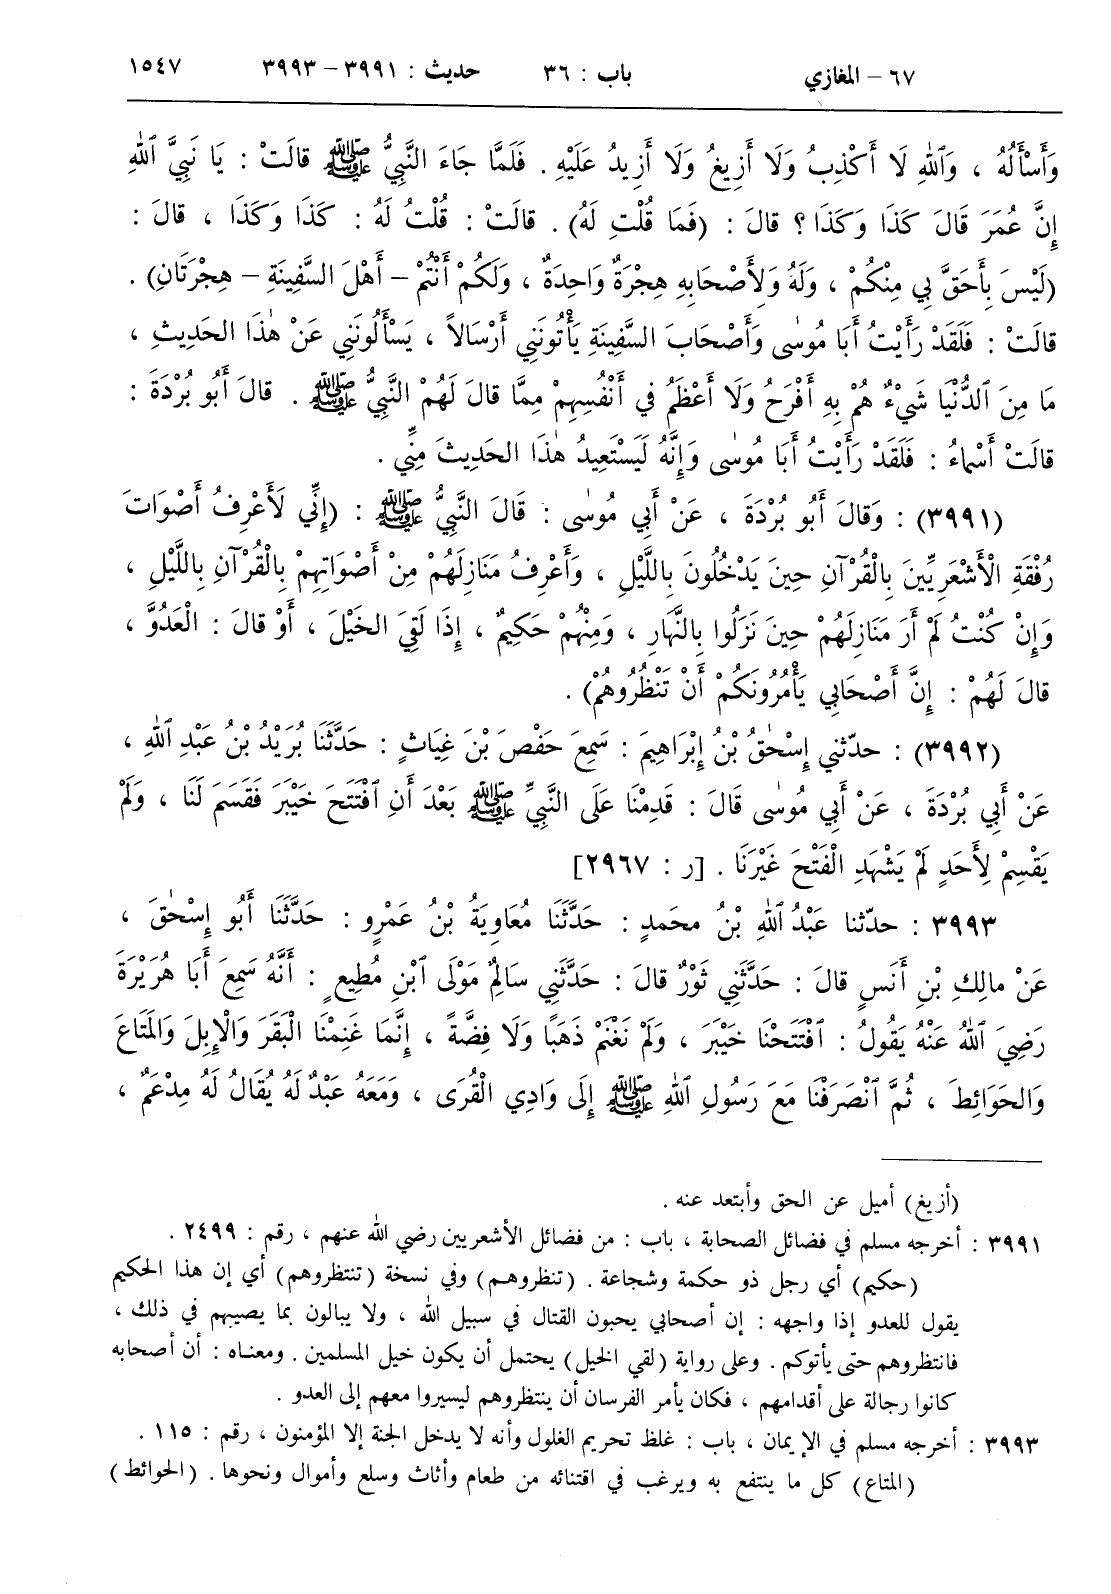 ٦٧ – المغازي   باب : ٣٦   حديث : ٣٩٩١ – ٣٩٩٣   ١٥٤٧
وَأَسْأَلُهُ ، وَٱللهِ لَا أَكْذِبُ وَلَا أَزِيغُ وَلَا أَزِيدُ عَلَيْهِ . فَلَمَّا جَاءَ النَّبِيُّ ﷺ قالَتْ : يَا نَبِيَّ ٱللهِ
إِنَّ عُمَرَ قَالَ كَذَا وَكَذَا ؟ قالَ : (فَمَا قُلْتِ لَهُ) . قالَتْ : قُلْتُ لَهُ : كَذَا وَكَذَا ، قالَ :
(لَيْسَ بِأَحَقَّ بِي مِنْكُمْ ، وَلَهُ وَلِأَصْحَابِهِ هِجْرَةٌ وَاحِدَةٌ ، وَلَكُمْ أَنْتُمْ – أَهْلَ السَّفِينَةِ – هِجْرَتَانِ) .
قالَتْ : فَلَقَدْ رَأَيْتُ أَبَا مُوسٰى وَأَصْحَابَ السَّفِينَةِ يَأْتُونَنِي أَرْسَالاً ، يَسْأَلُونَنِي عَنْ هٰذَا الحَدِيثِ ،
مَا مِنَ ٱلدُّنْيَا شَيْءٌ هُمْ بِهِ أَفْرَحُ وَلَا أَعْظَمُ فِي أَنْفُسِهِمْ مِمَّا قالَ لَهُمُ النَّبِيُّ ﷺ . قالَ أَبُو بُرْدَةَ :
قالَتْ أَسْماءُ : فَلَقَدْ رَأَيْتُ أَبَا مُوسٰى وَإِنَّهُ لَيَسْتَعِيدُ هٰذَا الحَدِيثَ مِنِّي .
(٣٩٩١) : وَقالَ أَبُو بُرْدَةَ ، عَنْ أَبِي مُوسٰى : قَالَ النَّبِيُّ ﷺ : (إِنِّي لَأَعْرِفُ أَصْوَاتَ
رُفْقَةِ الْأَشْعَرِيِّينَ بِالْقُرْآنِ حِينَ يَدْخُلُونَ بِاللَّيْلِ ، وَأَعْرِفُ مَنَازِلَهُمْ مِنْ أَصْوَاتِهِمْ بِالْقُرْآنِ بِاللَّيْلِ ،
وَإِنْ كُنْتُ لَمْ أَرَ مَنَازِلَهُمْ حِينَ نَزَلُوا بِالنَّهَارِ ، وَمِنْهُمْ حَكِيمٌ ، إِذَا لَقِيَ الخَيْلَ ، أَوْ قالَ : الْعَدُوَّ ،
قالَ لَهُمْ : إِنَّ أَصْحَابِي يَأْمُرُونَكُمْ أَنْ تَنْظُرُوهُمْ) .
(٣٩٩٢) : حدّثني إِسْحٰقُ بْنُ إِبْرَاهِيمَ : سَمِعَ حَفْصَ بْنَ غِيَاثٍ : حَدَّثَنَا بُرَيْدُ بْنُ عَبْدِ ٱللهِ ،
عَنْ أَبِي بُرْدَةَ ، عَنْ أَبِي مُوسٰى قَالَ : قَدِمْنَا عَلَى النَّبِيِّ ﷺ بَعْدَ أَنِ ٱفْتَتَحَ خَيْبَرَ فَقَسَمَ لَنَا ، وَلَمْ
يَقْسِمْ لِأَحَدٍ لَمْ يَشْهَدِ الْفَتْحَ غَيْرَنَا . [ر : ٢٩٦٧]
٣٩٩٣ : حدّثنا عَبْدُ ٱللهِ بْنُ محمدٍ : حَدَّثَنَا مُعَاوِيَةُ بْنُ عَمْرٍو : حَدَّثَنَا أَبُو إِسْحٰقَ ،
عَنْ مالِكِ بْنِ أَنَسٍ قالَ : حَدَّثَنِي ثَوْرٌ قالَ : حَدَّثَنِي سالِمٌ مَوْلَى ٱبْنِ مُطِيعٍ : أَنَّهُ سَمِعَ أَبَا هُرَيْرَةَ
رَضِيَ ٱللهُ عَنْهُ يَقُولُ : ٱفْتَتَحْنَا خَيْبَرَ ، وَلَمْ نَغْنَمْ ذَهَبًا وَلَا فِضَّةً ، إِنَّمَا غَنِمْنَا الْبَقَرَ وَالْإِبِلَ وَالمَتَاعَ
وَالحَوَائِطَ ، ثُمَّ ٱنْصَرَفْنَا مَعَ رَسُولِ ٱللهِ ﷺ إِلَى وَادِي الْقُرَى ، وَمَعَهُ عَبْدٌ لَهُ يُقَالُ لَهُ مِدْعَمٌ ،
(أزيغ) أميل عن الحق وأبتعد عنه .
٣٩٩١ : أخرجه مسلم في فضائل الصحابة ، باب : من فضائل الأشعريين رضي الله عنهم ، رقم : ٢٤٩٩ .
(حكيم) أي رجل ذو حكمة وشجاعة . (تنظروهم) وفي نسخة (تنتظروهم) أي إن هذا الحكيم
يقول للعدو إذا واجهه : إن أصحابي يحبون القتال في سبيل الله ، ولا يبالون بما يصيبهم في ذلك ،
فانتظروهم حتى يأتوكم . وعلى رواية (لقي الخيل) يحتمل أن يكون خيل المسلمين . ومعناه : أن أصحابه
كانوا رجالة على أقدامهم ، فكان يأمر الفرسان أن ينتظروهم ليسيروا معهم إلى العدو .
٣٩٩٣ : أخرجه مسلم في الإيمان ، باب : غلظ تحريم الغلول وأنه لا يدخل الجنة إلا المؤمنون ، رقم : ١١٥ .
(المتاع) كل ما ينتفع به ويرغب في اقتنائه من طعام وأثاث وسلع وأموال ونحوها . (الحوائط)